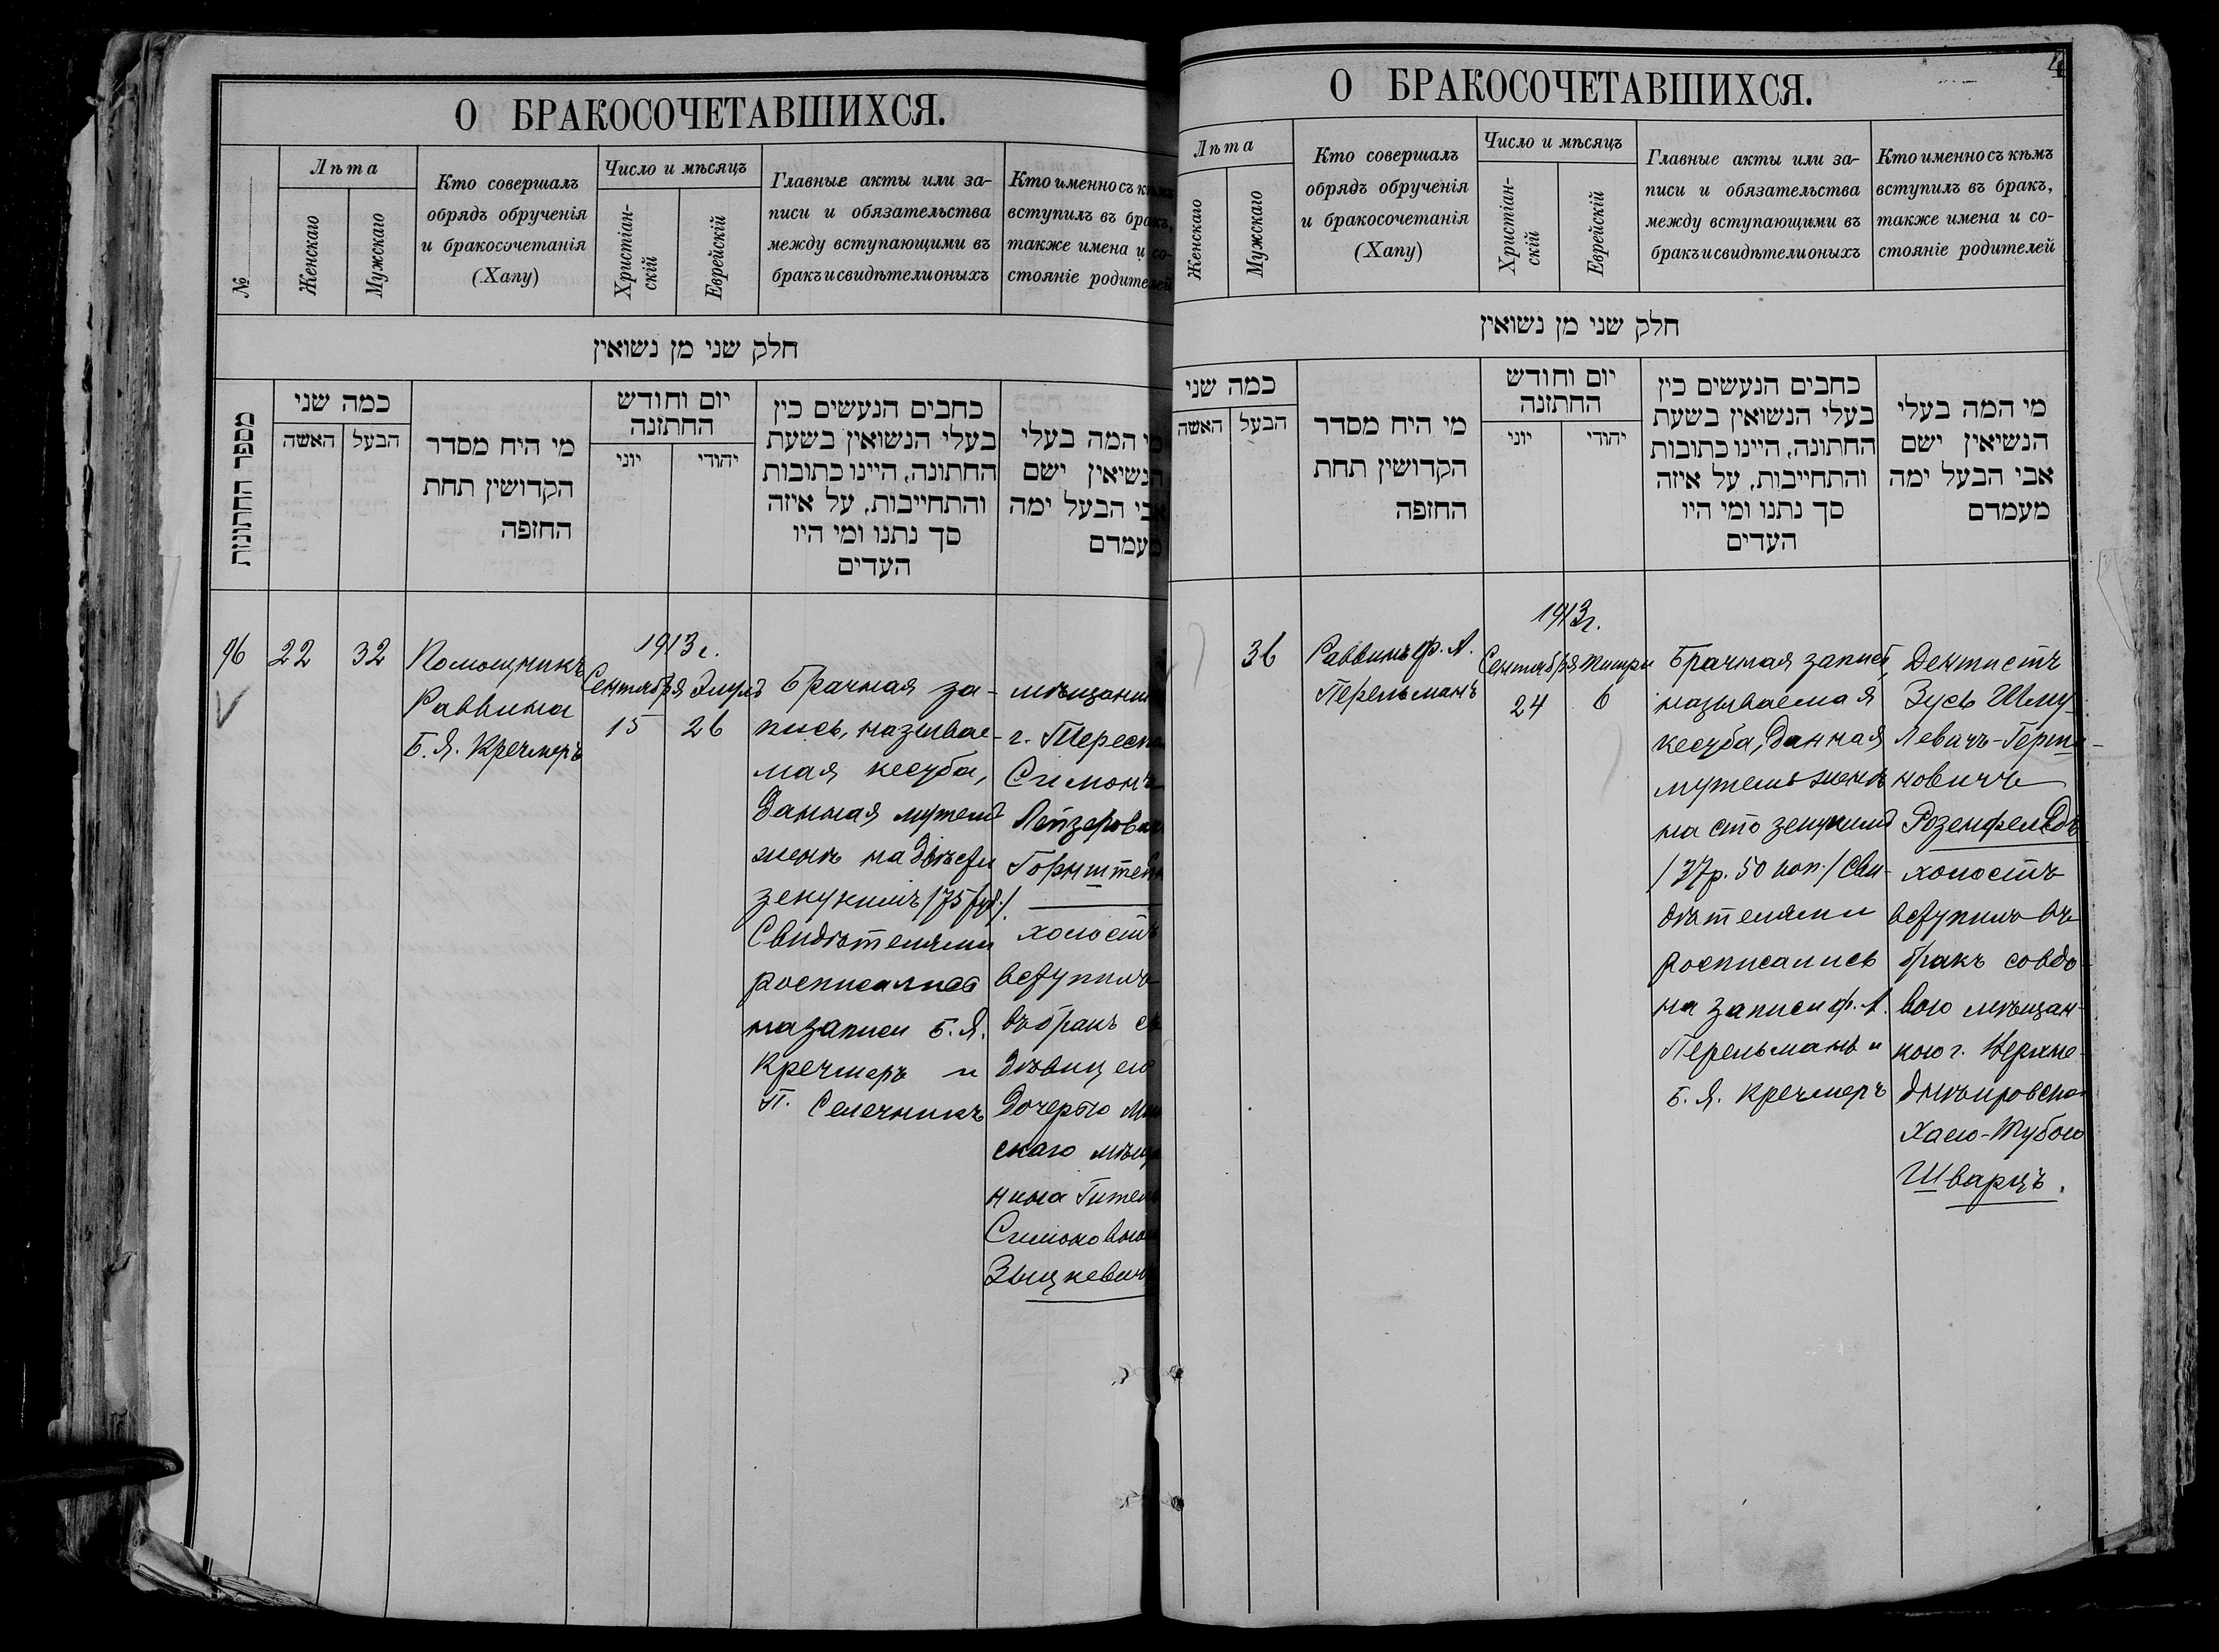 О БРАКОСОЧЕТАВШИХСЯ.
№
Лѣта
Женскаго
Мужскаго
Кто совершалъ
обрядъ обрученія
и бракосочетанія
(Хапу)
Число и мѣсяцъ
Христіан-
скій
Еврейскій
Главные акты или за-
писи и обязательства
между вступающими въ
бракъ и свидѣтели оныхъ
Кто именно съ кѣмъ
вступилъ въ бракъ,
также имена и со-
стояніе родителей
חלק שני מן נשואין
מספר החתונות
כמה שני
האשה
הבעל
מי היח מסדר
הקדושין תחת
החזפה
יום וחודש
החתזנה
יוני
יהודי
כחבים הנעשים כין
בעלי הנשואין בשעת
החתונה, היינו כתובות
והתחייבות, על איזה
סך נתנו ומי היו
העדים
מי המה בעלי
הנשיאין ישם
אבי הבעל ימה
מעמדם
96
22
32
Помощникъ
Раввина
Б. Я. Кречмеръ
1913 г.
Сентября
15
Элулъ
26
Брачная за-
пись, называе-
мая кесуба,
данная мужемъ
женѣ на двѣсти
зекукимъ /75 руб./.
Свидѣтелями
росписались
на записи Б. Я.
Кречмеръ и
П. Селечникъ
мѣщанин
г. Тересп
Симонъ
Лейзерович
Горнштейн
холостъ
вступилъ
въ бракъ съ
дѣвицею
дочерью Мин
скаго мѣща
нина Гител
Симоновною
Зыцкевич
О БРАКОСОЧЕТАВШИХСЯ.
4
Лѣта
Женскаго
Мужскаго
Кто совершалъ
обрядъ обрученія
и бракосочетанія
(Хапу)
Число и мѣсяцъ
Христіан-
скій
Еврейскій
Главные акты или за-
писи и обязательства
между вступающими въ
бракъ и свидѣтели оныхъ
Кто именно съ кѣмъ
вступилъ въ бракъ,
также имена и со-
стояніе родителей
חלק שני מן נשואין
כמה שני
האשה
הבעל
מי היח מסדר
הקדושין תחת
החזפה
יום וחודש
החתזנה
יוני
יהודי
כחבים הנעשים כין
בעלי הנשואין בשעת
החתונה, היינו כתובות
והתחייבות, על איזה
סך נתנו ומי היו
העדים
מי המה בעלי
הנשיאין ישם
אבי הבעל ימה
מעמדם
36
Раввинъ Ф. А.
Перельманъ
1913 г.
Сентября
24
Тишри
6
Брачная запись,
называемая
кесуба, данная
мужемъ женѣ
на сто зекукимъ
/37 р. 50 коп./ Сви-
дѣтелями
росписались
на записи Ф. А.
Перельманъ и
Б. Я. Кречмеръ
Дентистъ
Зусь Шму-
левичъ-Герша-
новичъ
Розенфельдъ
холостъ
вступилъ въ
бракъ со вдо-
вою мѣщан-
кою г. Верхне-
днѣпровска
Хаею-Тубою
Шварцъ.